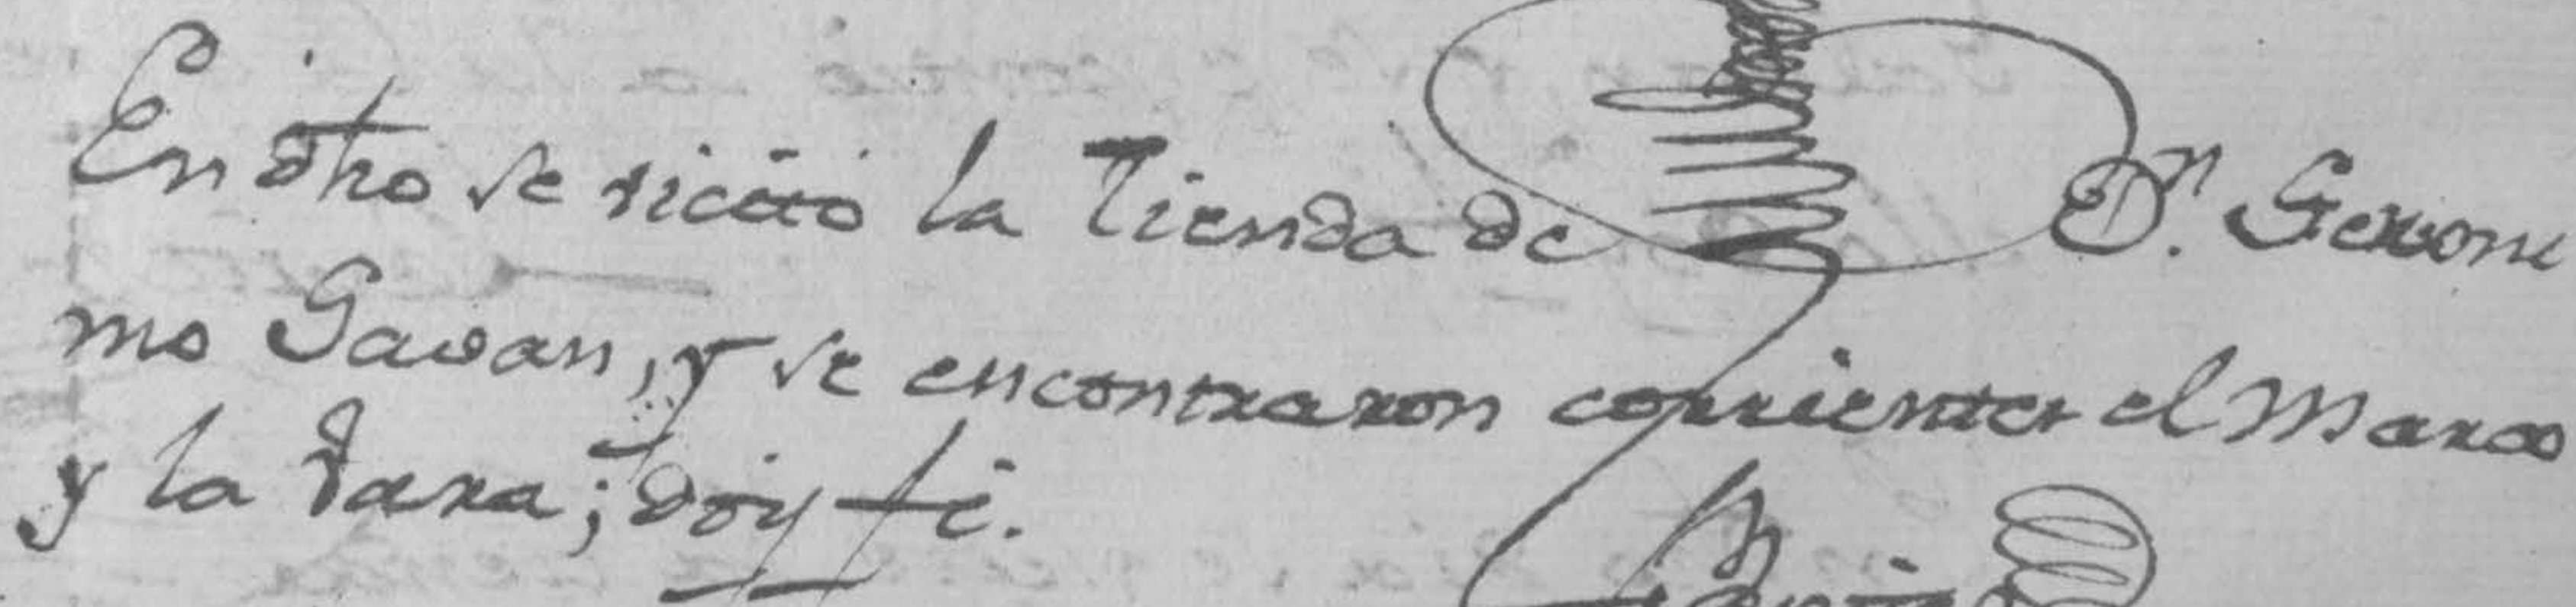 En dho se vicitó la Tienda de Dn. Geroni
mo Gavan, y se encontraron corrientes el Marco
y la Vara; doy fé.